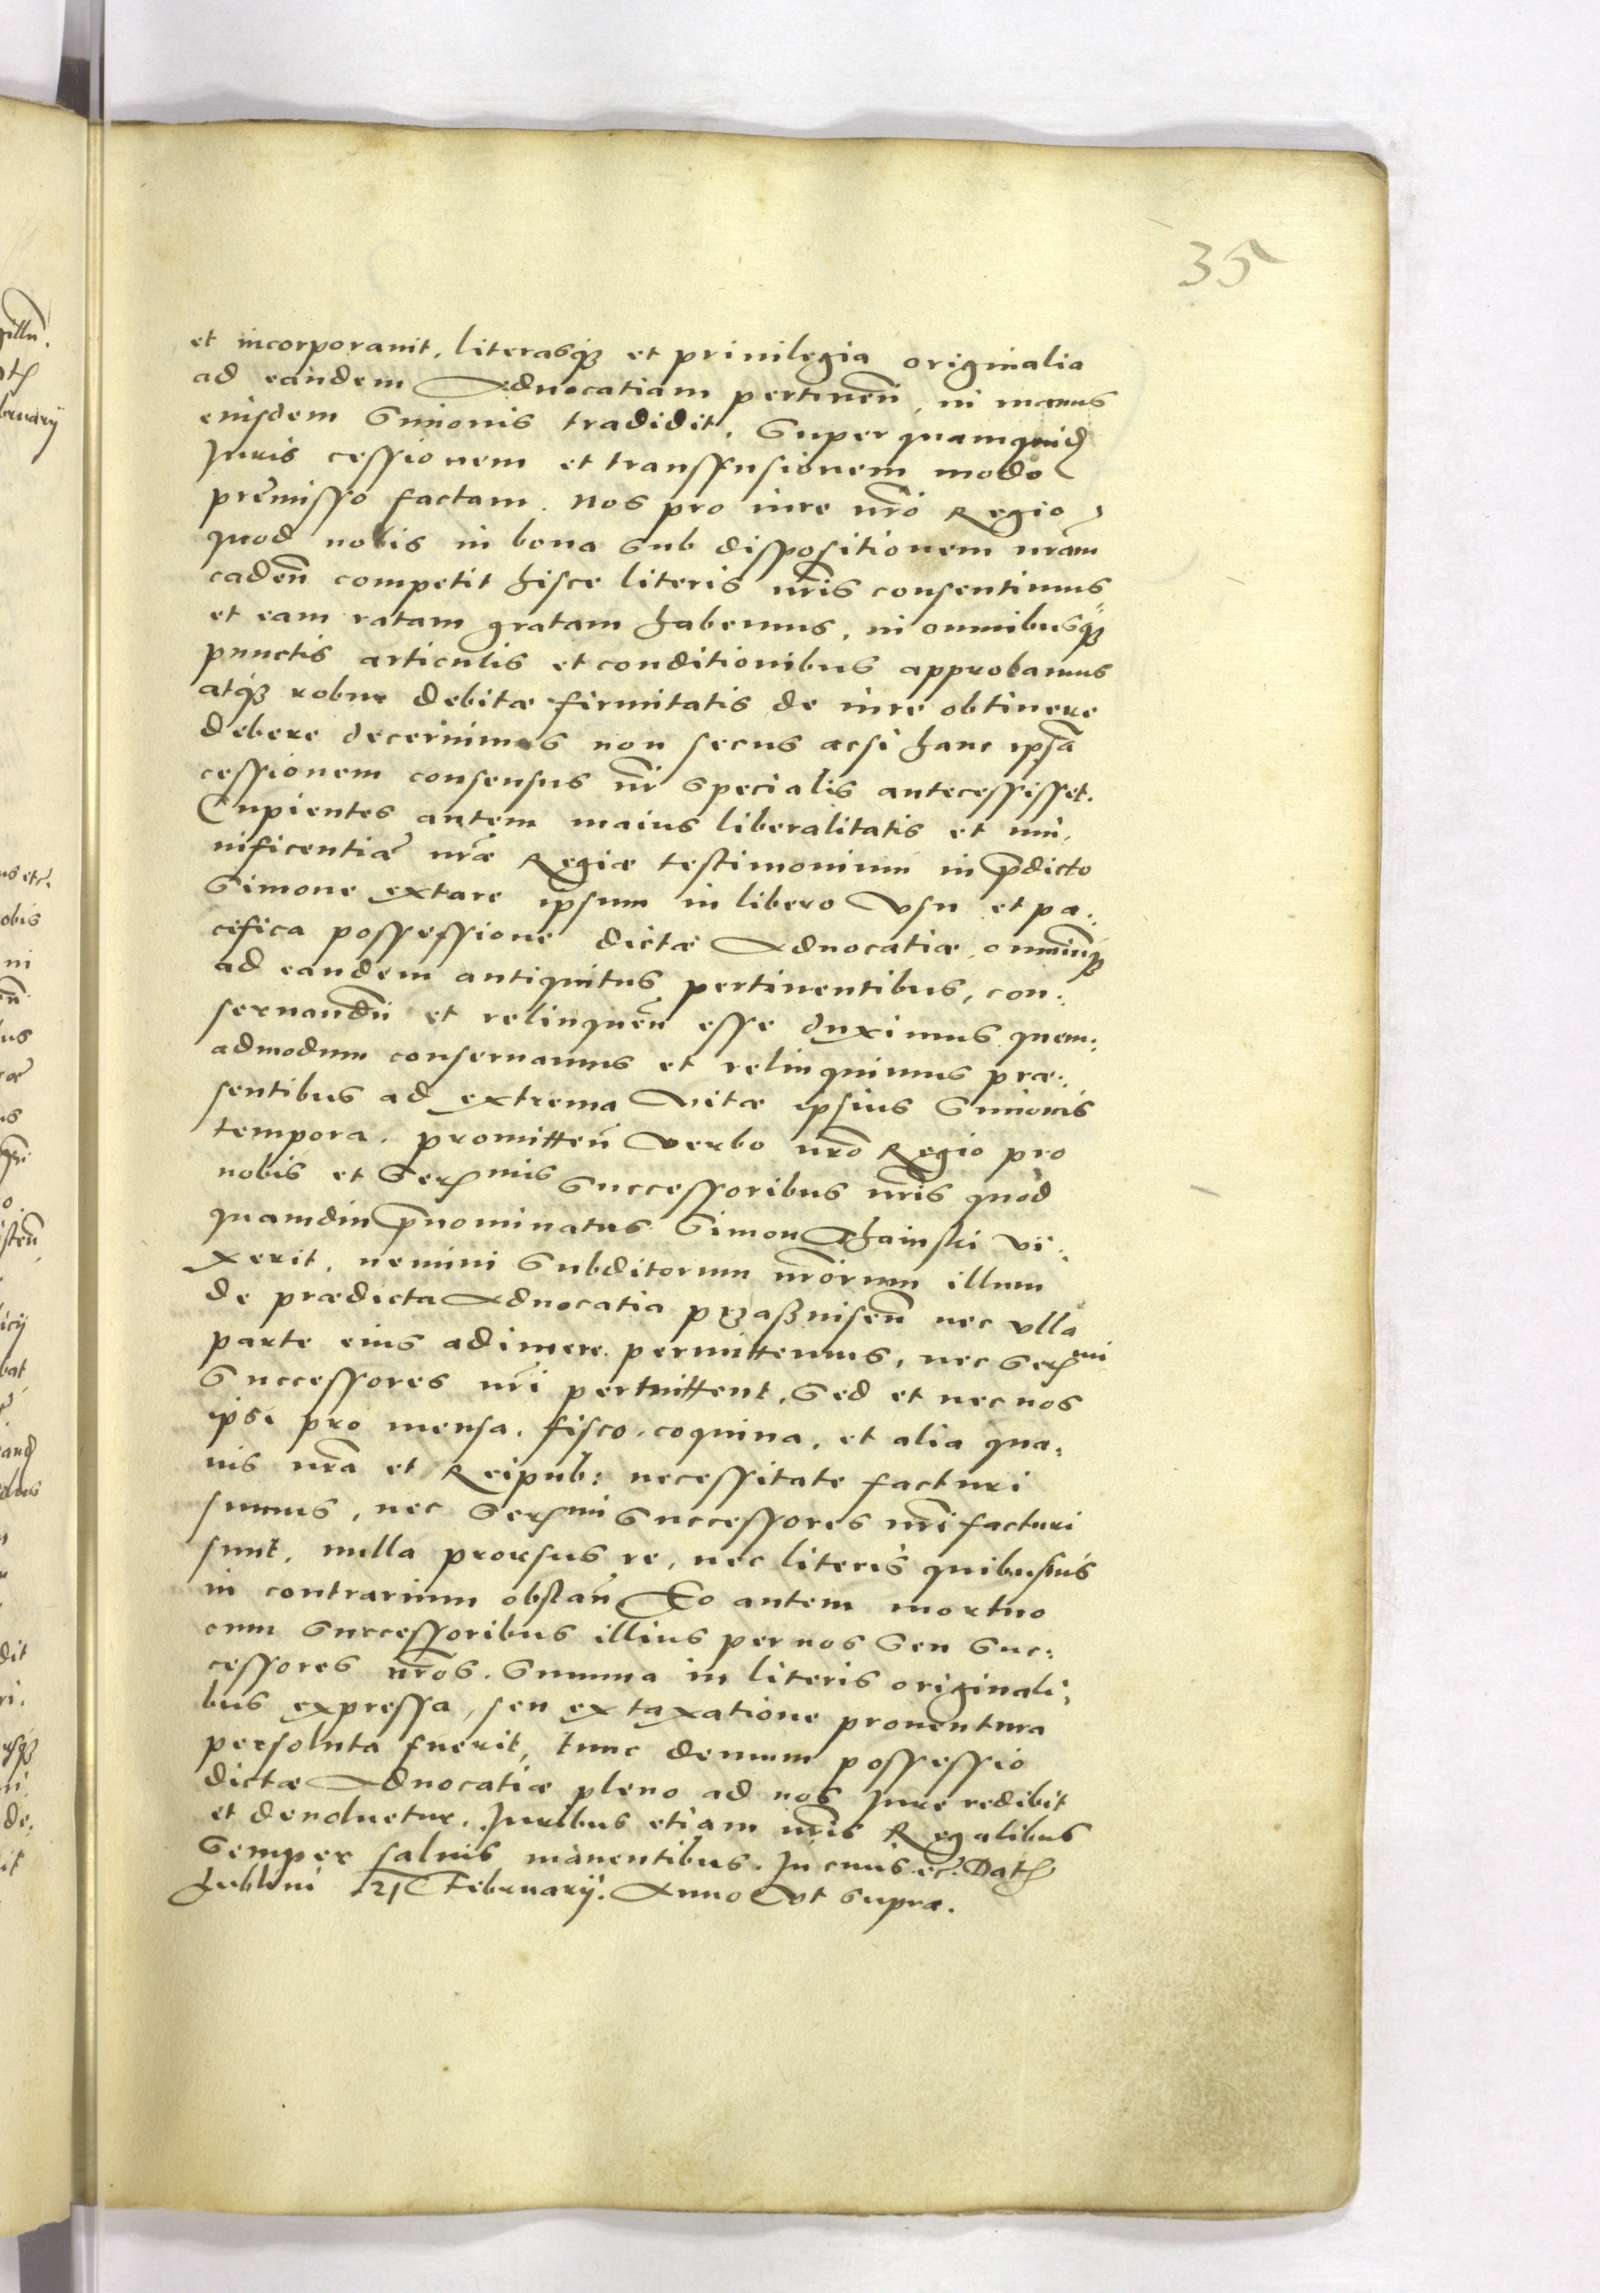 35
et incorporauit, literasq3 et priuilegia originalia
ad eandem Aduocatiam pertineñ, in manus
eiusdem Simonis tradidit. Super quamquid
Juris cessionem et transfusionem modo
premisso factam. Nos pro iure nro Regio
quod nobis in bona sub dispositionem nram
cadeñ competit hisce literis nris consentimus
et eam ratam gratam habemus, in omnibusq3
punctis articulis et conditionibus approbamus
atq3 robur debitæ firmitatis de iure obtinere
debere decernimus non secus acsi hanc ipsã
cessionem consensus nr specialis antecessisset.
Cupientes autem maius liberalitatis et mu,
nificentiæ nræ Regiæ testimonium in p̃dicto
Simone extare ipsum in libero vsu et pa:
cifica possessione dictæ Aduocatiæ, omniumq3
ad eandem antiquitus pertinentibus, con:
seruandũ et relinqueñ esse duximus quem:
admodum conseruamus et relinquimus præ:
sentibus ad extrema vitæ ipsius Simonis
tempora. promitteñ verbo nro Regio pro
nobis et Serᵐⁱˢ Successoribus nris quod
quamdiu p̃nominatus Simon Chainski vi:
xerit, nemini Subditorum nrorum illum
de prædicta Aduocatia przaßniseñ nec vlla
parte eius adimere permittemus, nec Serᵐⁱ
Successores nri permittent, Sed et nec nos
ipsi pro mensa, fisco, coquina, et alia qua:
uis nra et Reipub: necessitate facturi
sumus, nec Serᵐⁱ Successores nri facturi
sunt, nulla prorsus re, nec literis quibusuis
in contrarium obstañ Eo autem mortuo
cum Successoribus illius per nos Seu Suc:
cessores nros. Summa in literis originali,
bus expressa, seu ex taxatione prouentura
persoluta fuerit, tunc demum possessio
dictæ Aduocatiæ pleno ad nos Jure redibit
et deuoluetur. Juribus etiam nris Regalibus
semper saluis manentibus. In cuius ec̃. Dat
Lublini 21 Februarij. Anno vt supra.